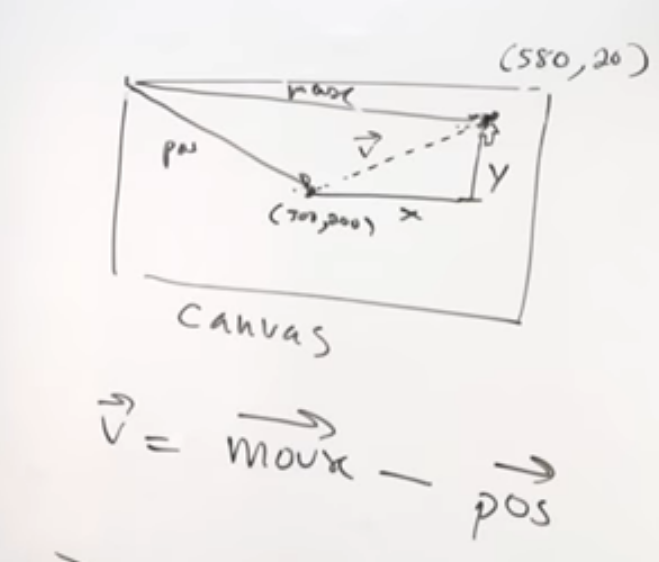 (580, 20)
mouse
pos
v
y
(300,200)
x
Canvas
v = mouse - pos